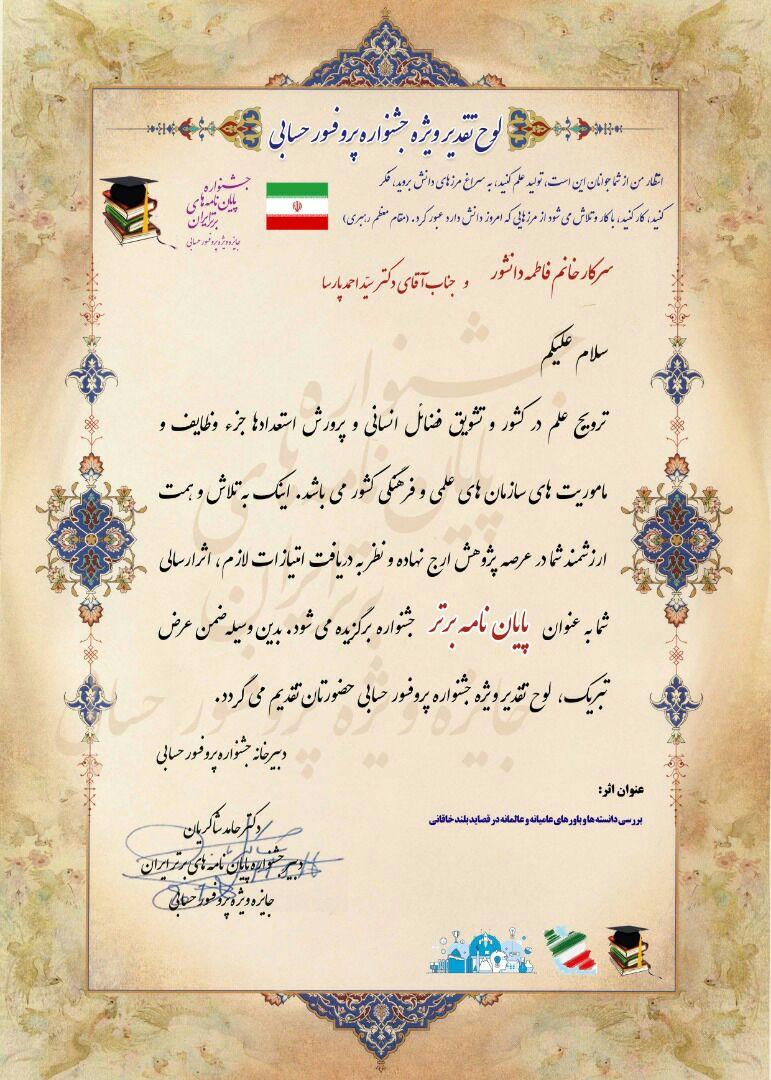 لوح تقدیر ویژه جشنواره پروفسور حسابی
انتظار من از شما جوانان این است، تولید علم کنید، به سراغ مرزهای دانش بروید، فکر
کنید، کار کنید، با کار و تلاش می شود از مرزهایی که امروز دانش دارد عبور کرد. (مقام معظم رهبری)
جشنواره
پایان نامه های
برتر ایران
جایزه ویژه پروفسور حسابی
سرکار خانم فاطمه دانشور و جناب آقای دکتر سیّد احمد پارسا
سلام علیکم
ترویج علم در کشور و تشویق فضائل انسانی و پرورش استعدادها جزء وظایف و
ماموریت های سازمان های علمی و فرهنگی کشور می باشد. اینک به تلاش و همت
ارزشمند شما در عرصه پژوهش ارج نهاده و نظر به دریافت امتیازات لازم، اثر ارسالی
شما به عنوان پایان نامه برتر جشنواره برگزیده می شود. بدین وسیله ضمن عرض
تبریک، لوح تقدیر ویژه جشنواره پروفسور حسابی حضورتان تقدیم می گردد.
جشنواره
پایان نامه های
برتر ایران
جایزه ویژه پروفسور حسابی
دبیرخانه جشنواره پروفسور حسابی
عنوان اثر:
بررسی دانسته ها و باورهای عامیانه و عالمانه در قصاید بلند خاقانی
دکتر حامد شاکریان
دبیر جشنواره پایان نامه های برتر ایران
جایزه ویژه پروفسور حسابی